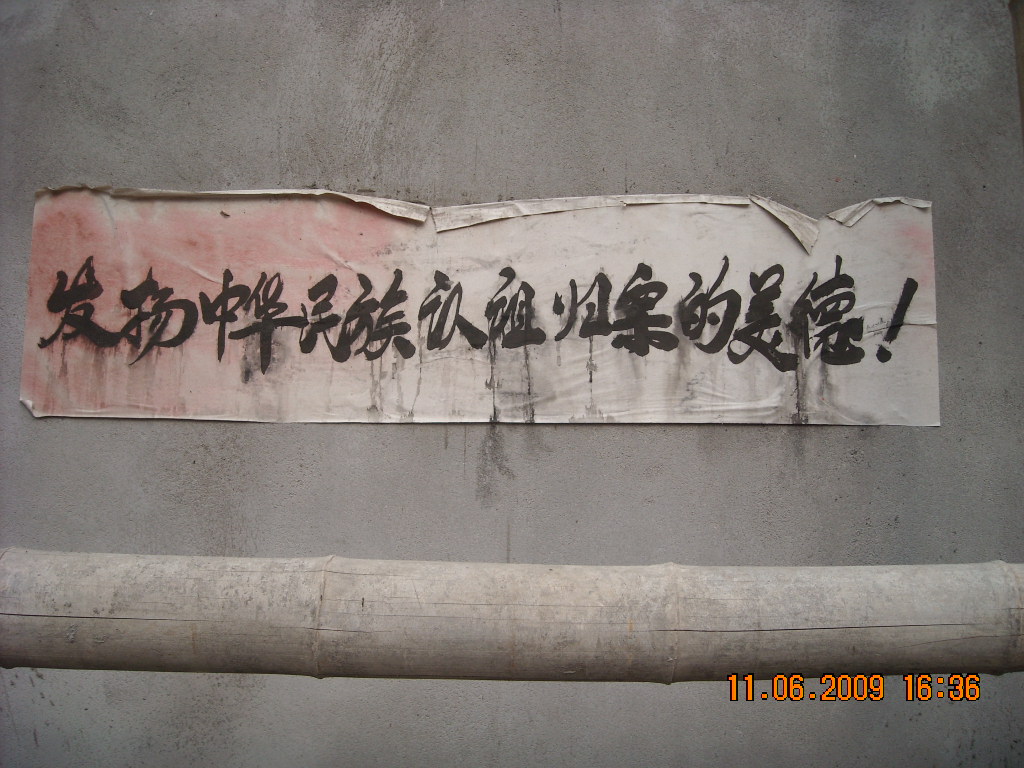 发扬中华民族认祖归宗的美德！
11.06.2009 16:36